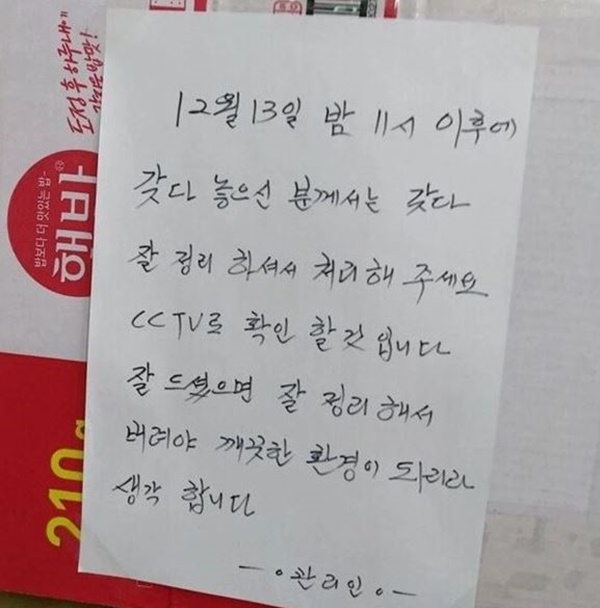 도정 후 하루내에
밥보다 더 맛있는 밥-
햇반
210g
12월 13일 밤 11시 이후에
갖다 놓으신 분께서는 갖다
잘 정리 하셔서 처리해 주세요
CCTV로 확인 할것 입니다
잘 드셨으면 잘 정리해서
버려야 깨끗한 환경이 되리라
생각 합니다
관리인